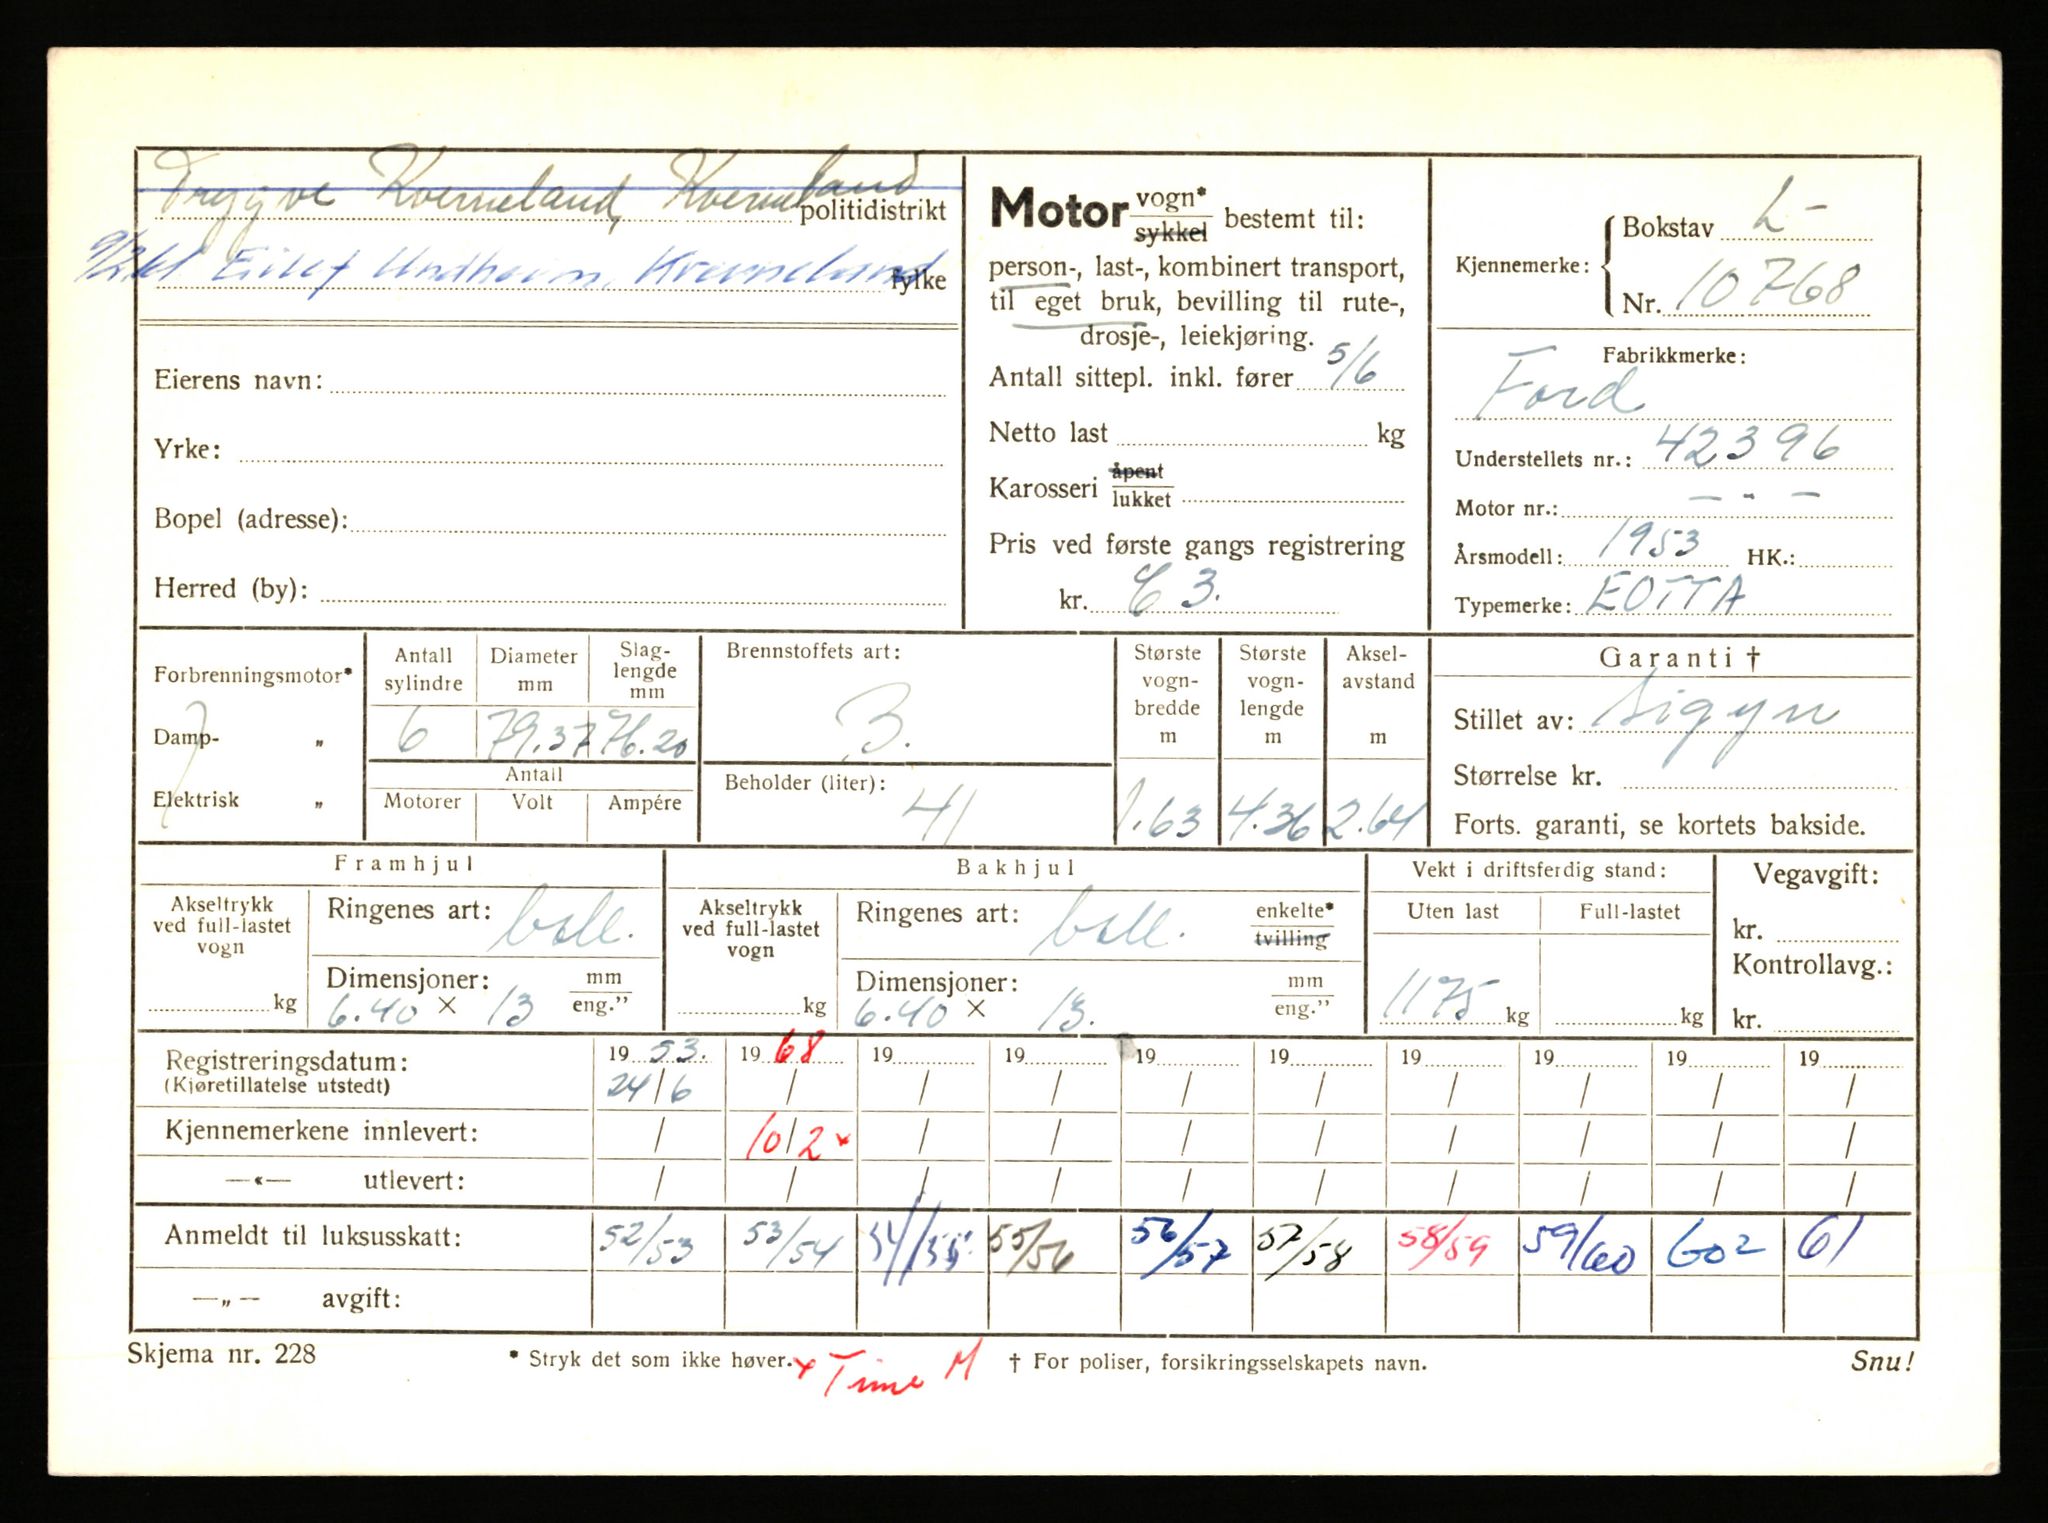 Trygve Kverneland, Kverneland
politidistrikt
9/2.61 Eilef Undheim, Kverneland
fylke
Eierens navn:
Yrke:
Bopel (adresse):
Herred (by):
Motor vogn* sykkel bestemt til:
person-, last-, kombinert transport,
til eget bruk, bevilling til rute-,
drosje-, leiekjøring.
Antall sittepl. inkl. fører 5/6
Netto last kg
Karosseri åpent lukket
Pris ved første gangs registrering
kr. C 3.
Kjennemerke: Bokstav L-
Nr. 10768
Fabrikkmerke:
Ford
Understellets nr.: 42396
Motor nr.: - - -
Årsmodell: 1953 HK.:
Typemerke: EOTTA
Forbrenningsmotor*
Damp- „
Elektrisk „
Antall sylindre
Diameter mm
Slag-lengde mm
6 79.37 76.20
Antall
Motorer Volt Ampére
Brennstoffets art:
B.
Beholder (liter):
41
Største vogn-bredde m
Største vogn-lengde m
Aksel-avstand m
1.63 4.36 2.64
Garanti †
Stillet av: Sigyn
Størrelse kr.
Forts. garanti, se kortets bakside.
Framhjul
Akseltrykk ved full-lastet vogn
kg
Ringenes art: ball.
Dimensjoner: mm eng.”
6.40 × 13
Bakhjul
Akseltrykk ved full-lastet vogn
kg
Ringenes art: ball. enkelte* tvilling
Dimensjoner: mm eng.”
6.40 × 13.
Vekt i driftsferdig stand:
Uten last Full-lastet
1175 kg kg
Vegavgift:
kr.
Kontrollavg.:
kr.
Registreringsdatum: 19 53. 19 68 19 19 19 19 19 19 19 19
(Kjøretillatelse utstedt) 24/6 / / / / / / / / /
Kjennemerkene innlevert: / 10/2 × / / / / / / / /
—«— utlevert: / / / / / / / / / /
Anmeldt til luksusskatt: 52/53 53/54 54/55 55/56 56/57 57/58 58/59 59/60 60² 61
—„— avgift:
Skjema nr. 228 * Stryk det som ikke høver. × Time M † For poliser, forsikringsselskapets navn. Snu!